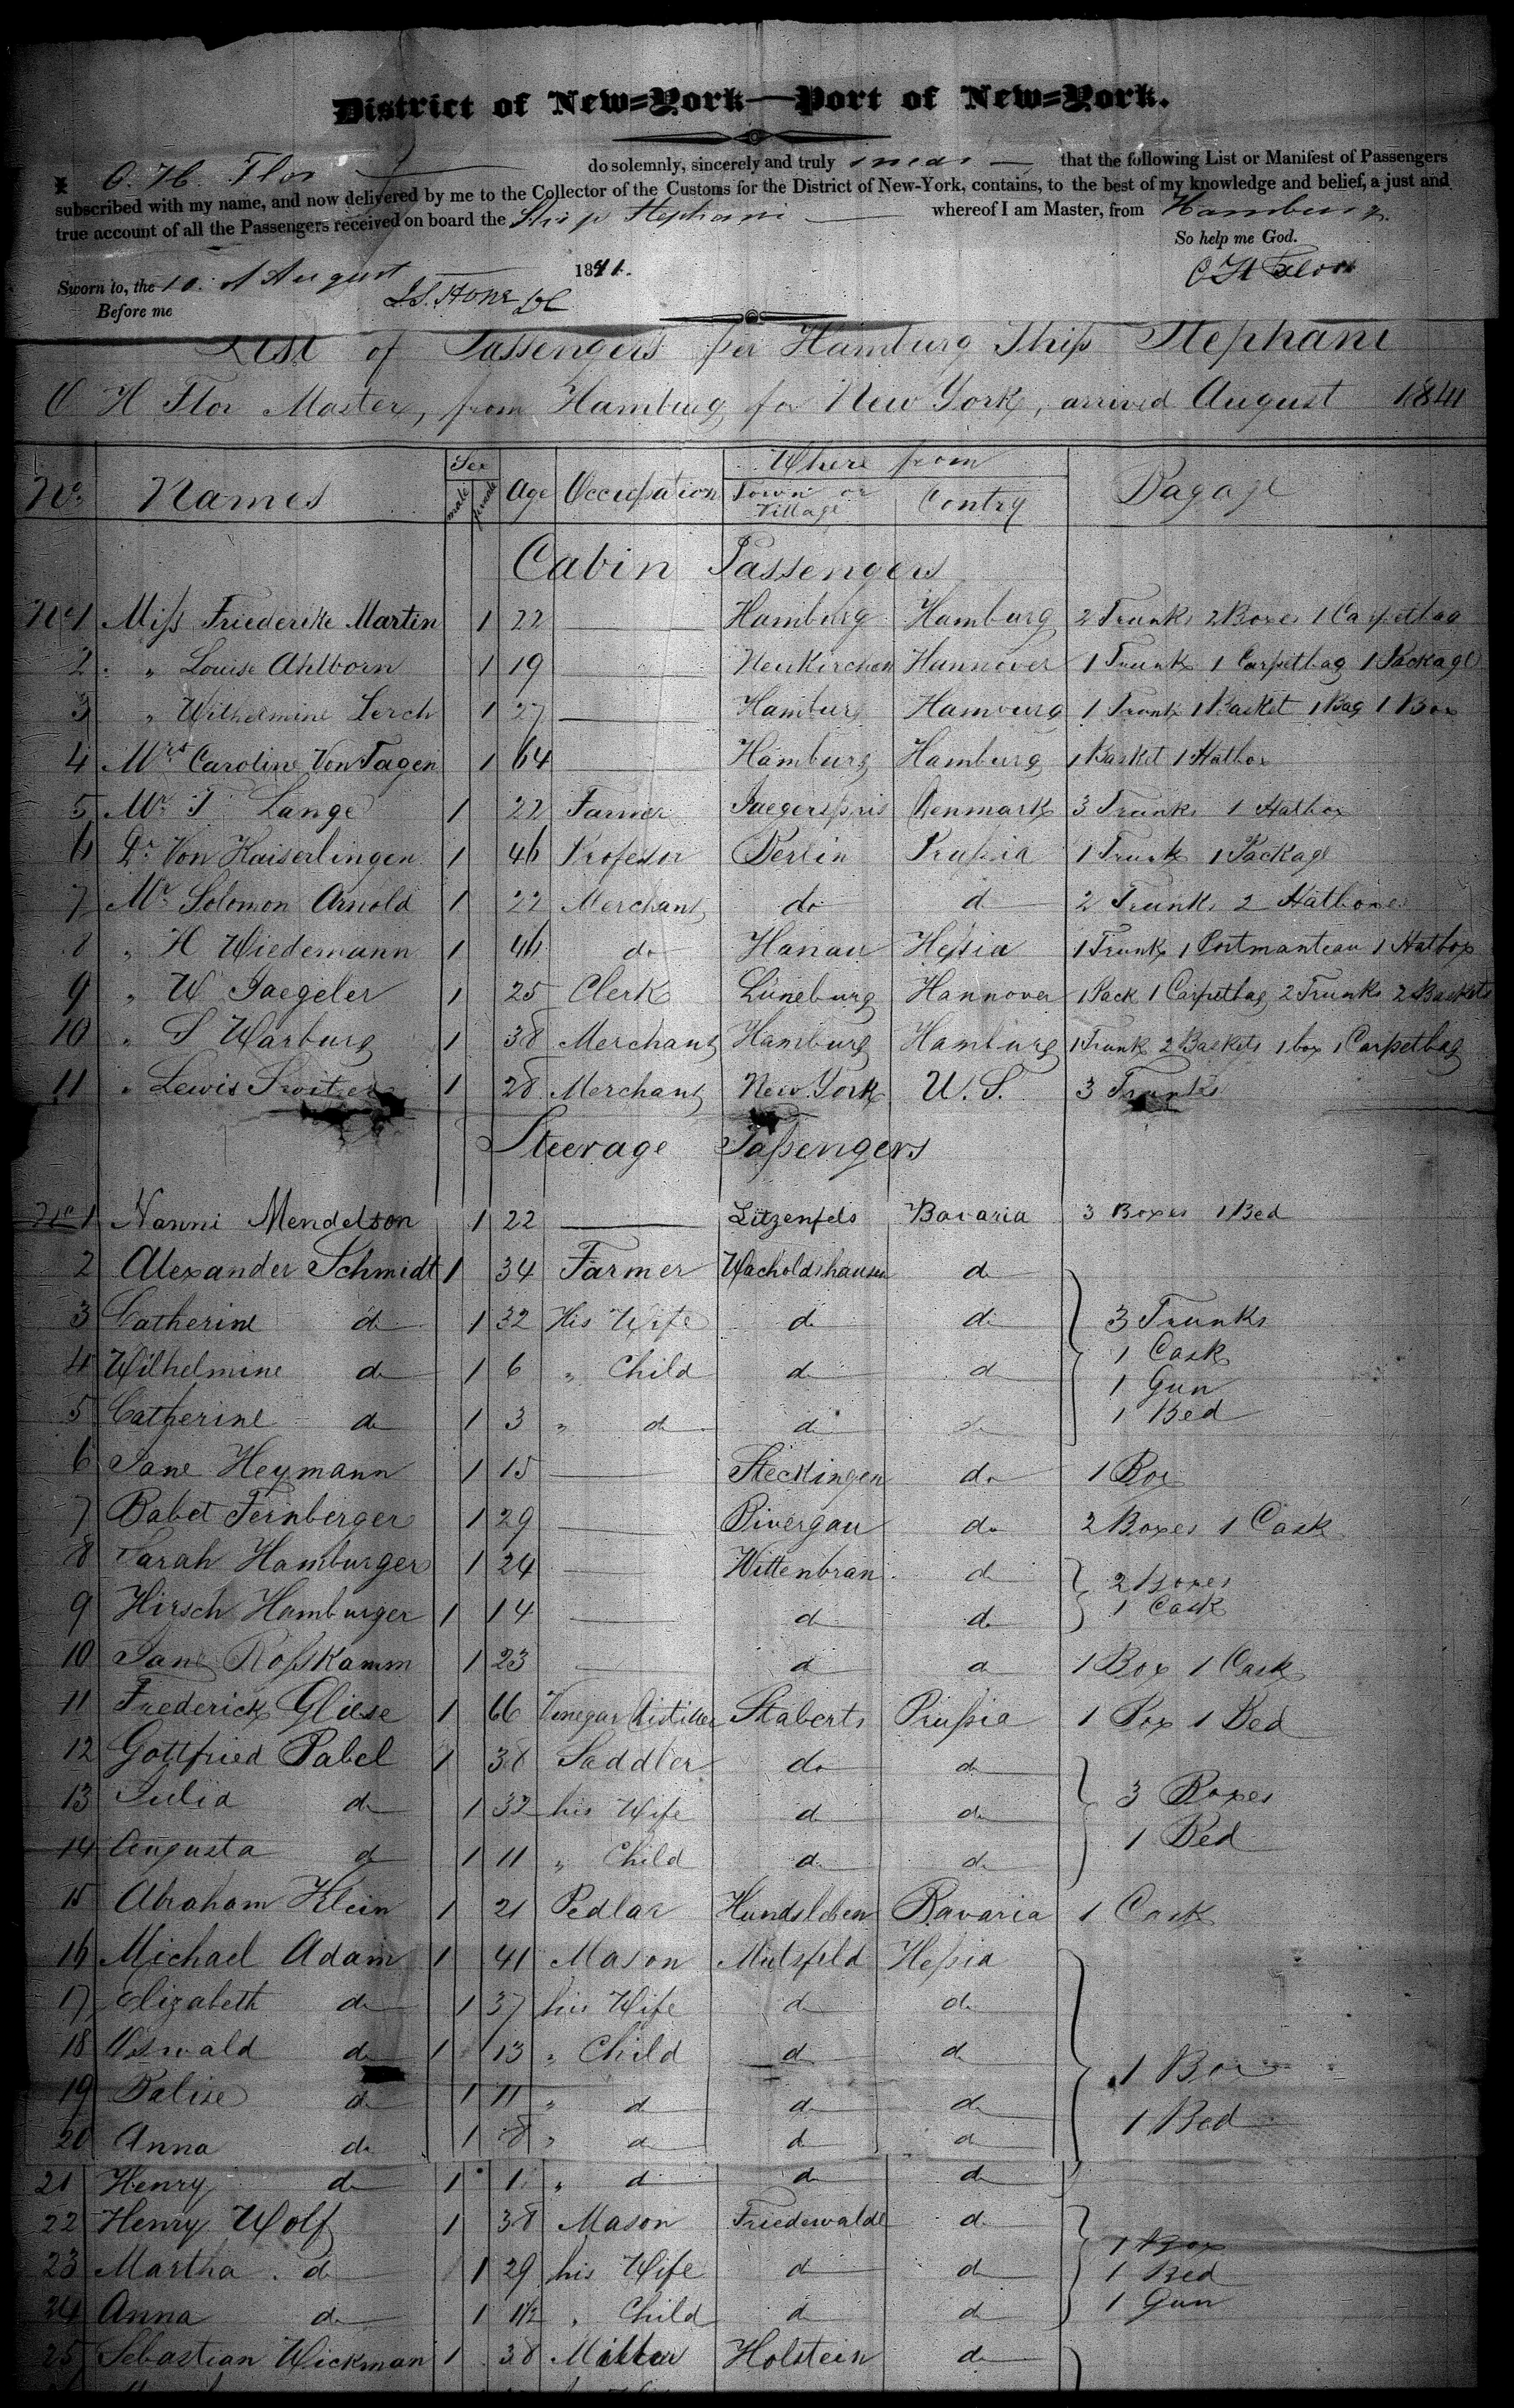 District of New=York—Port of New=York.
I, C. H. Flor do solemnly, sincerely and truly swear that the following List or Manifest of Passengers
subscribed with my name, and now delivered by me to the Collector of the Customs for the District of New-York, contains, to the best of my knowledge and belief, a just and
true account of all the Passengers received on board the Ship Stephani whereof I am Master, from Hamburg.
So help me God.
Sworn to, the 10. of August 1841.
C H Flor
Before me
List of Passengers per Hamburg Ship Stephani
C H Flor Master, from Hamburg for New York, arrived August 1841
No. Names Sex male female Age Occupation Where from Town or Village Contry Bagage
Cabin Passengers
No 1 Miss Friederike Martin 1 22 Hamburg Hamburg 2 Trunks 2 Boxes 1 Carpetbag
2 " Louise Ahlborn 1 19 Neukirchen Hannover 1 Trunk 1 Carpetbag 1 Package
3 " Wilhelmine Lerch 1 27 Hamburg Hamburg 1 Trunk 1 Basket 1 Bag 1 Box
4 Mrs Caroline Von Tagen 1 64 Hamburg Hamburg 1 Basket 1 Hatbox
5 Mr. J Lange 1 22 Farmer Jaegerspris Denmark 3 Trunks 1 Hatbox
6 Dr. Von Kaiserlingen 1 46 Professor Berlin Prussia 1 Trunk 1 Package
7 Mr. Solomon Arnold 1 22 Merchant do d 2 Trunks 2 Hatboxes
8 " H Wiedemann 1 46 do Hanau Hessia 1 Trunk 1 Portmanteau 1 Hatbox
9 " W Jaegeler 1 25 Clerk Lüneburg Hannover 1 Pack 1 Carpetbag 2 Trunks 2 Baskets
10 " S Warburg 1 38 Merchant Hamburg Hamburg 1 Trunk 2 Baskets 1 box 1 Carpetbag
11 " Lewis Switzer 1 28 Merchant New York U. S. 3 Trunks
Steerage Passengers
No 1 Nanni Mendelson 1 22 Litzenfels Bavaria 3 Boxes 1 Bed
2 Alexander Schmidt 1 34 Farmer Wacholdshausen do
3 Catherine do 1 32 His Wife do do 3 Trunks
4 Wilhelmine do 1 6 " Child do do 1 Cask
1 Gun
5 Catherine do 1 3 " do do do 1 Bed
6 Jane Heymann 1 15 Steckingen do 1 Box
7 Babet Feinberger 1 29 Pivergau do 2 Boxes 1 Cask
8 Sarah Hamburger 1 24 Wittenbran do 2 Boxes
9 Hirsch Hamburger 1 14 do do 1 Cask
10 Jane Rosskamm 1 23 do do 1 Box 1 Cask
11 Frederick Gliese 1 66 Vinegar Distiller Staberts Prussia 1 Box 1 Bed
12 Gottfried Pabel 1 38 Saddler do do
13 Julia do 1 32 his Wife do do 3 Boxes
14 Augusta do 1 11 " Child do do 1 Bed
15 Abraham Klein 1 21 Pedlar Hundsleben Bavaria 1 Cask
16 Michael Adam 1 41 Mason Mutsfeld Hessia
17 Elizabeth do 1 37 his Wife do do
18 Oswald do 1 13 " Child do do 1 Box
19 Balise do 1 11 " do do do
20 Anna do 1 8 " do do do 1 Bed
21 Henry do 1 1 " do do do
22 Henry Wolf 1 38 Mason Friedewalde do 1 Box
23 Martha do 1 29 his Wife do do 1 Bed
24 Anna do 1 1½ " Child do do 1 Gun
25 Sebastian Wickman 1 38 Miller Holstein do